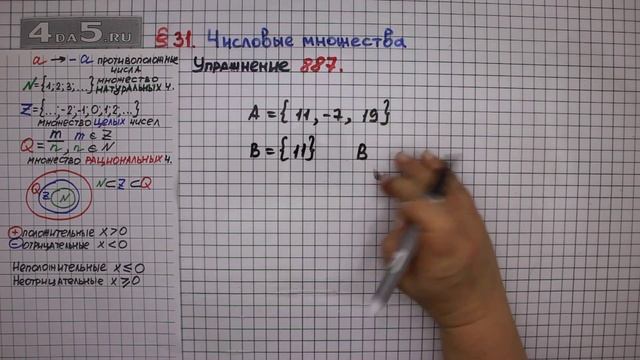 4DA5.RU
§ 31. Числовые множества
Упражнение 887.
a → -a противоположные числа
N={1;2;3;...} множество НАТУРАЛЬНЫХ ч.
Z={...;-2;-1;0;1;2;...}
множество ЦЕЛЫХ чисел
Q = m/n, m ∈ Z, n ∈ N
множество РАЦИОНАЛЬНЫХ ч.
Q Z N N⊂Z⊂Q
+ положительные x>0
- отрицательные x<0
Неположительные x⩽0
Неотрицательные x⩾0
A = { 11, -7, 19 }
B = { 11 } B